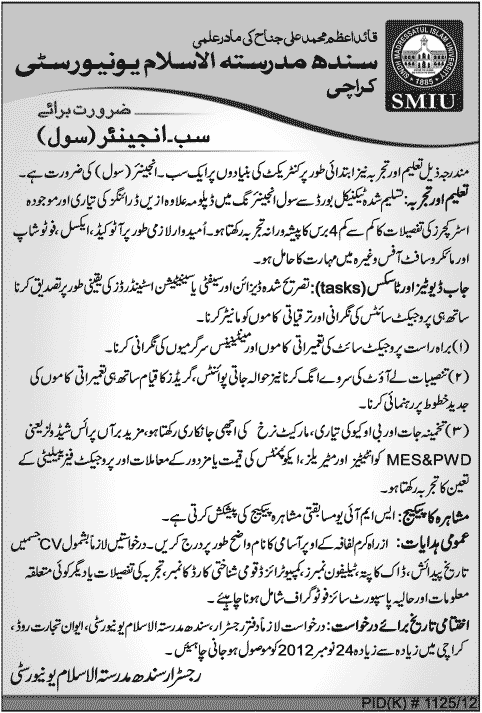 قائد اعظم محمد علی جناح کی مادر علمی
سندھ مدرستہ الاسلام یونیورسٹی
کراچی
SINDH MADRESSATUL ISLAM UNIVERSITY
1885
SMIU
ضرورت برائے
سب۔انجینئر (سول)
مندرجہ ذیل تعلیم اور تجربہ نیز ابتدائی طور پر کنٹریکٹ کی بنیادوں پر ایک سب۔انجینئر (سول) کی ضرورت ہے۔
تعلیم اور تجربہ: تسلیم شدہ ٹیکنیکل بورڈ سے سول انجینئرنگ میں ڈپلومہ علاوہ ازیں ڈرائنگز کی تیاری اور موجودہ
اسٹرکچرز کی تفصیلات کا کم سے کم 4 برس کا پیشہ ورانہ تجربہ رکھتا ہو۔ اُمیدوار لازمی طور پر آٹو کیڈ، ایکسل، فوٹو شاپ
اور مائکرو سافٹ آفس وغیرہ میں مہارت کا حامل ہو۔
جاب ڈیوٹیز اور ٹاسکس (tasks): تصریح شدہ ڈیزائن اور سیفٹی یا سینیٹیشن اسٹینڈرڈز کی یقینی طور پر تصدیق کرنا
ساتھ ہی پروجیکٹ سائٹس کی نگرانی اور ترقیاتی کاموں کو مانیٹر کرنا۔
(۱) براہ راست پروجیکٹ سائٹ کی تعمیراتی کاموں اور مینٹیننس سرگرمیوں کی نگرانی کرنا۔
(۲) تنصیبات لے آؤٹ کی سروے انگ کرنا نیز حوالہ جاتی پوائنٹس، گریڈز کا قیام ساتھ ہی تعمیراتی کاموں کی
جدید خطوط پر رہنمائی کرنا۔
(۳) تخمینہ جات اور بی او کیو کی تیاری، مارکیٹ نرخ کی اچھی جانکاری رکھتا ہو، مزید برآں پرائس شیڈولز یعنی
MES&PWD کوانٹیٹیز اور مٹیریلز، ایکوپمنٹس کی قیمت یا مزدور کے معاملات اور پروجیکٹ فزیبلیٹی کے
تعین کا تجربہ رکھتا ہو۔
مشاہرہ کا پیکیج: ایس ایم آئی یو مسابقتی مشاہرہ پیکیج کی پیشکش کرتی ہے۔
عمومی ہدایات: ازراہ کرم لفافہ کے اوپر آسامی کا نام واضح طور پر درج کریں۔ درخواستیں لازماً بشمول CV جسمیں
تاریخ پیدائش، ڈاک کا پتہ، ٹیلیفون نمبرز، کمپیوٹرائزڈ قومی شناختی کارڈ کا نمبر، تجربہ کی تفصیلات یا دیگر کوئی متعلقہ
معلومات اور حالیہ پاسپورٹ سائز فوٹو گراف شامل ہونا چاہیئے۔
اختتامی تاریخ برائے درخواست: درخواست لازماً دفتر رجسٹرار، سندھ مدرستہ الاسلام یونیورسٹی، ایوان تجارت روڈ،
کراچی میں زیادہ سے زیادہ 24 نومبر 2012 کو موصول ہو جانی چاہیئں۔
رجسٹرار سندھ مدرستہ الاسلام یونیورسٹی
PID(K) # 1125/12